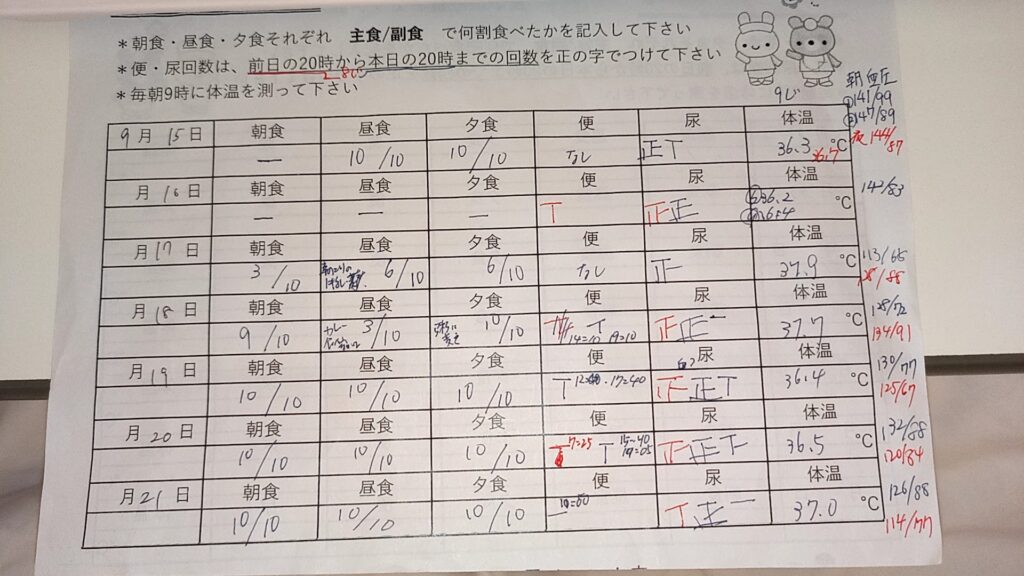 ＊朝食・昼食・夕食それぞれ 主食/副食 で何割食べたかを記入して下さい
＊便・尿回数は、前日の20時から本日の20時までの回数を正の字でつけて下さい
＊毎朝9時に体温を測って下さい
朝 血圧
9じ ①141/99
②147/89
夜144/87
9月15日 朝食 昼食 夕食 便 尿 体温
ー 10/10 10/10 なし 正T 36.3 ℃ 36.7
月16日 朝食 昼食 夕食 便 尿 体温 142/83
ー ー ー T 正正 36.2 36.4 ℃
月17日 朝食 昼食 夕食 便 尿 体温 113/65
3/10 6/10 6/10 なし 正 37.9 ℃
月18日 朝食 昼食 夕食 便 尿 体温 128/72
9/10 カレー 3/10 10/10 T 19=10 正正一 37.7 ℃ 134/91
月19日 朝食 昼食 夕食 便 尿 体温 130/77
10/10 10/10 10/10 T 17=40 正正T 36.4 ℃ 125/67
月20日 朝食 昼食 夕食 便 尿 体温 132/88
10/10 10/10 10/10 T 7=25 T 15=40 19=05 正正下 36.5 ℃ 120/84
月21日 朝食 昼食 夕食 便 尿 体温 126/88
10/10 10/10 10/10 T正一 37.0 ℃ 114/77